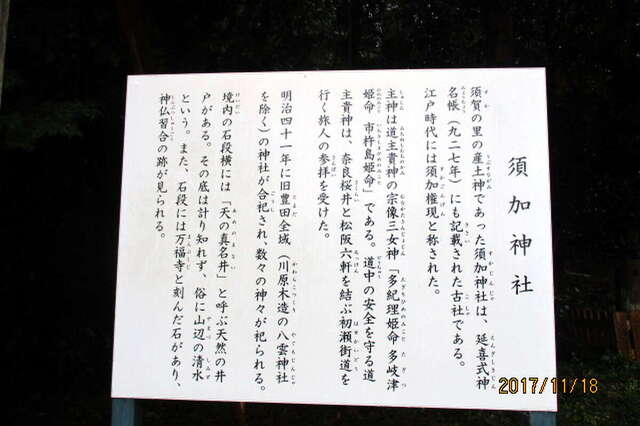 須加神社
須賀の里の産土神であった須加神社は、延喜式神
名帳（九二七年）にも記載された古社である。
江戸時代には須加権現と称された。
主神は道主貴神の宗像三女神「多紀理姫命 多岐津
姫命 市杵島姫命」である。道中の安全を守る道
主貴神は、奈良桜井と松阪六軒を結ぶ初瀬街道を
行く旅人の参拝を受けた。
明治四十一年に旧豊田全域（川原木造の八雲神社
を除く）の神社が合祀され、数々の神々が祀られる。
境内の石段横には「天の真名井」と呼ぶ天然の井
戸がある。その底は計り知れず、俗に山辺の清水
という。また、石段には万福寺と刻んだ石があり、
神仏習合の跡が見られる。
2017/11/18